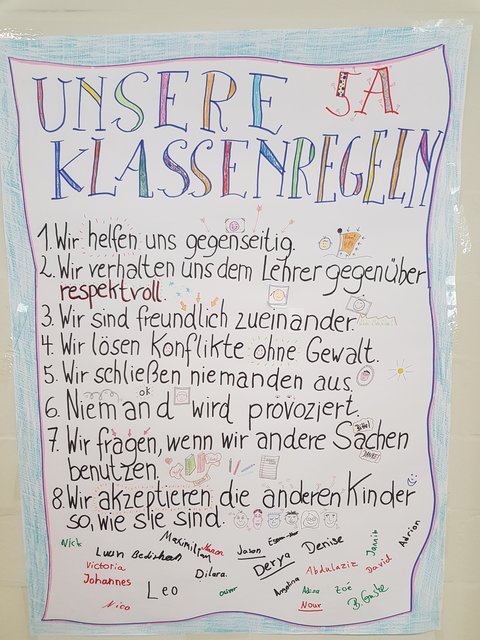 UNSERE 5A
KLASSENREGELN
1. Wir helfen uns gegenseitig.
2. Wir verhalten uns dem Lehrer gegenüber
respektvoll.
3. Wir sind freundlich zueinander.
4. Wir lösen Konflikte ohne Gewalt.
5. Wir schließen niemanden aus.
ok
6. Niemand wird provoziert.
7. Wir fragen, wenn wir andere Sachen
benutzen.
8. Wir akzeptieren die anderen Kinder
so, wie sie sind.
Nick
Luan
Maximilian
Jason
Denise
Jannik
Adrian
Victoria
Derya
Abdulaziz
David
Johannes
Dilara
Leo
Angelina
Zoé
Nico
Nour